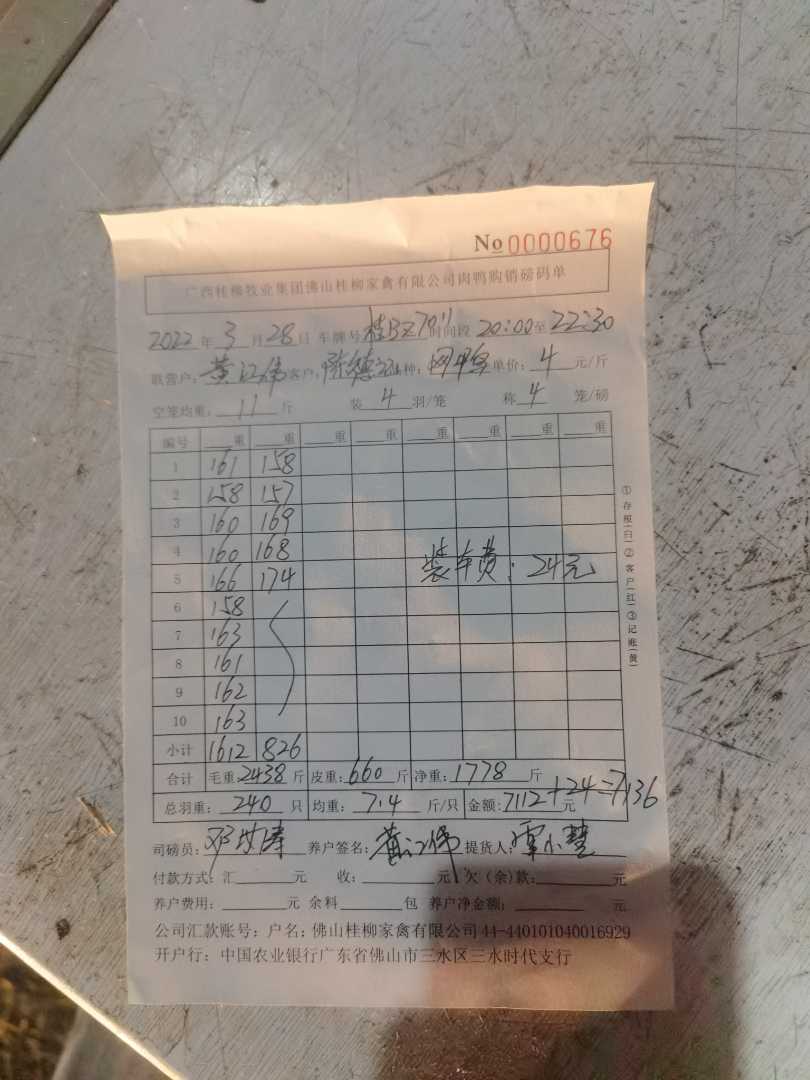 No 0000676
广西桂柳牧业集团佛山桂柳家禽有限公司肉鸭购销磅码单
2022年3月28日 车牌号 时间段 20:00至22:30
联营户: 黄江伟 客户: 种: 单价: 4 元/斤
空笼均重: 11 斤 装 4 羽/笼 称 4 笼/磅
编号 重 重 重 重 重 重 重 重
1 161 158
2 158 157
3 160 169
4 160 168
5 166 174 装车费: 24元
6 158
7 163
8 161
9 162
10 163
小计 1612 826
合计 毛重: 2438 斤 皮重: 660 斤 净重: 1778 斤
总羽重: 240 只 均重: 7.4 斤/只 金额: 7112+24=7136 元
司磅员: 养户签名: 黄江伟 提货人:
付款方式: 汇 元 收: 元 欠(余)款: 元
养户费用: 元 余料 包 养户净金额: 元
公司汇款账号: 户名: 佛山桂柳家禽有限公司 44-440101040016929
开户行: 中国农业银行广东省佛山市三水区三水时代支行
①存根(白)②客户(红)③记账(黄)